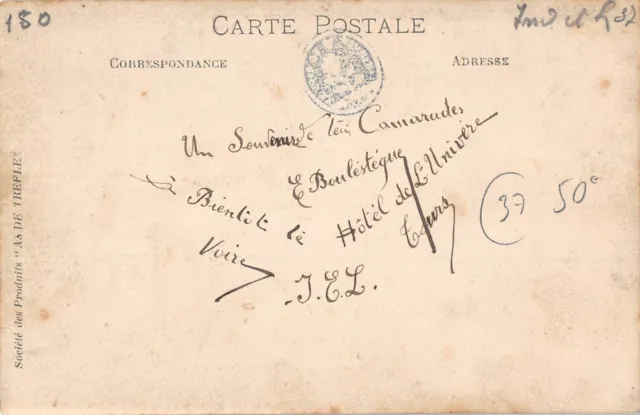 150
Ind et L 37
CARTE POSTALE
CORRESPONDANCE
ADRESSE
Un Souvenir de tes Camarades
E Boulestèque
Hôtel de L'Univere
Tours
à Bientot te
Voire
J.E.L.
37 50c
Société des Produits "AS DE TREFLE"